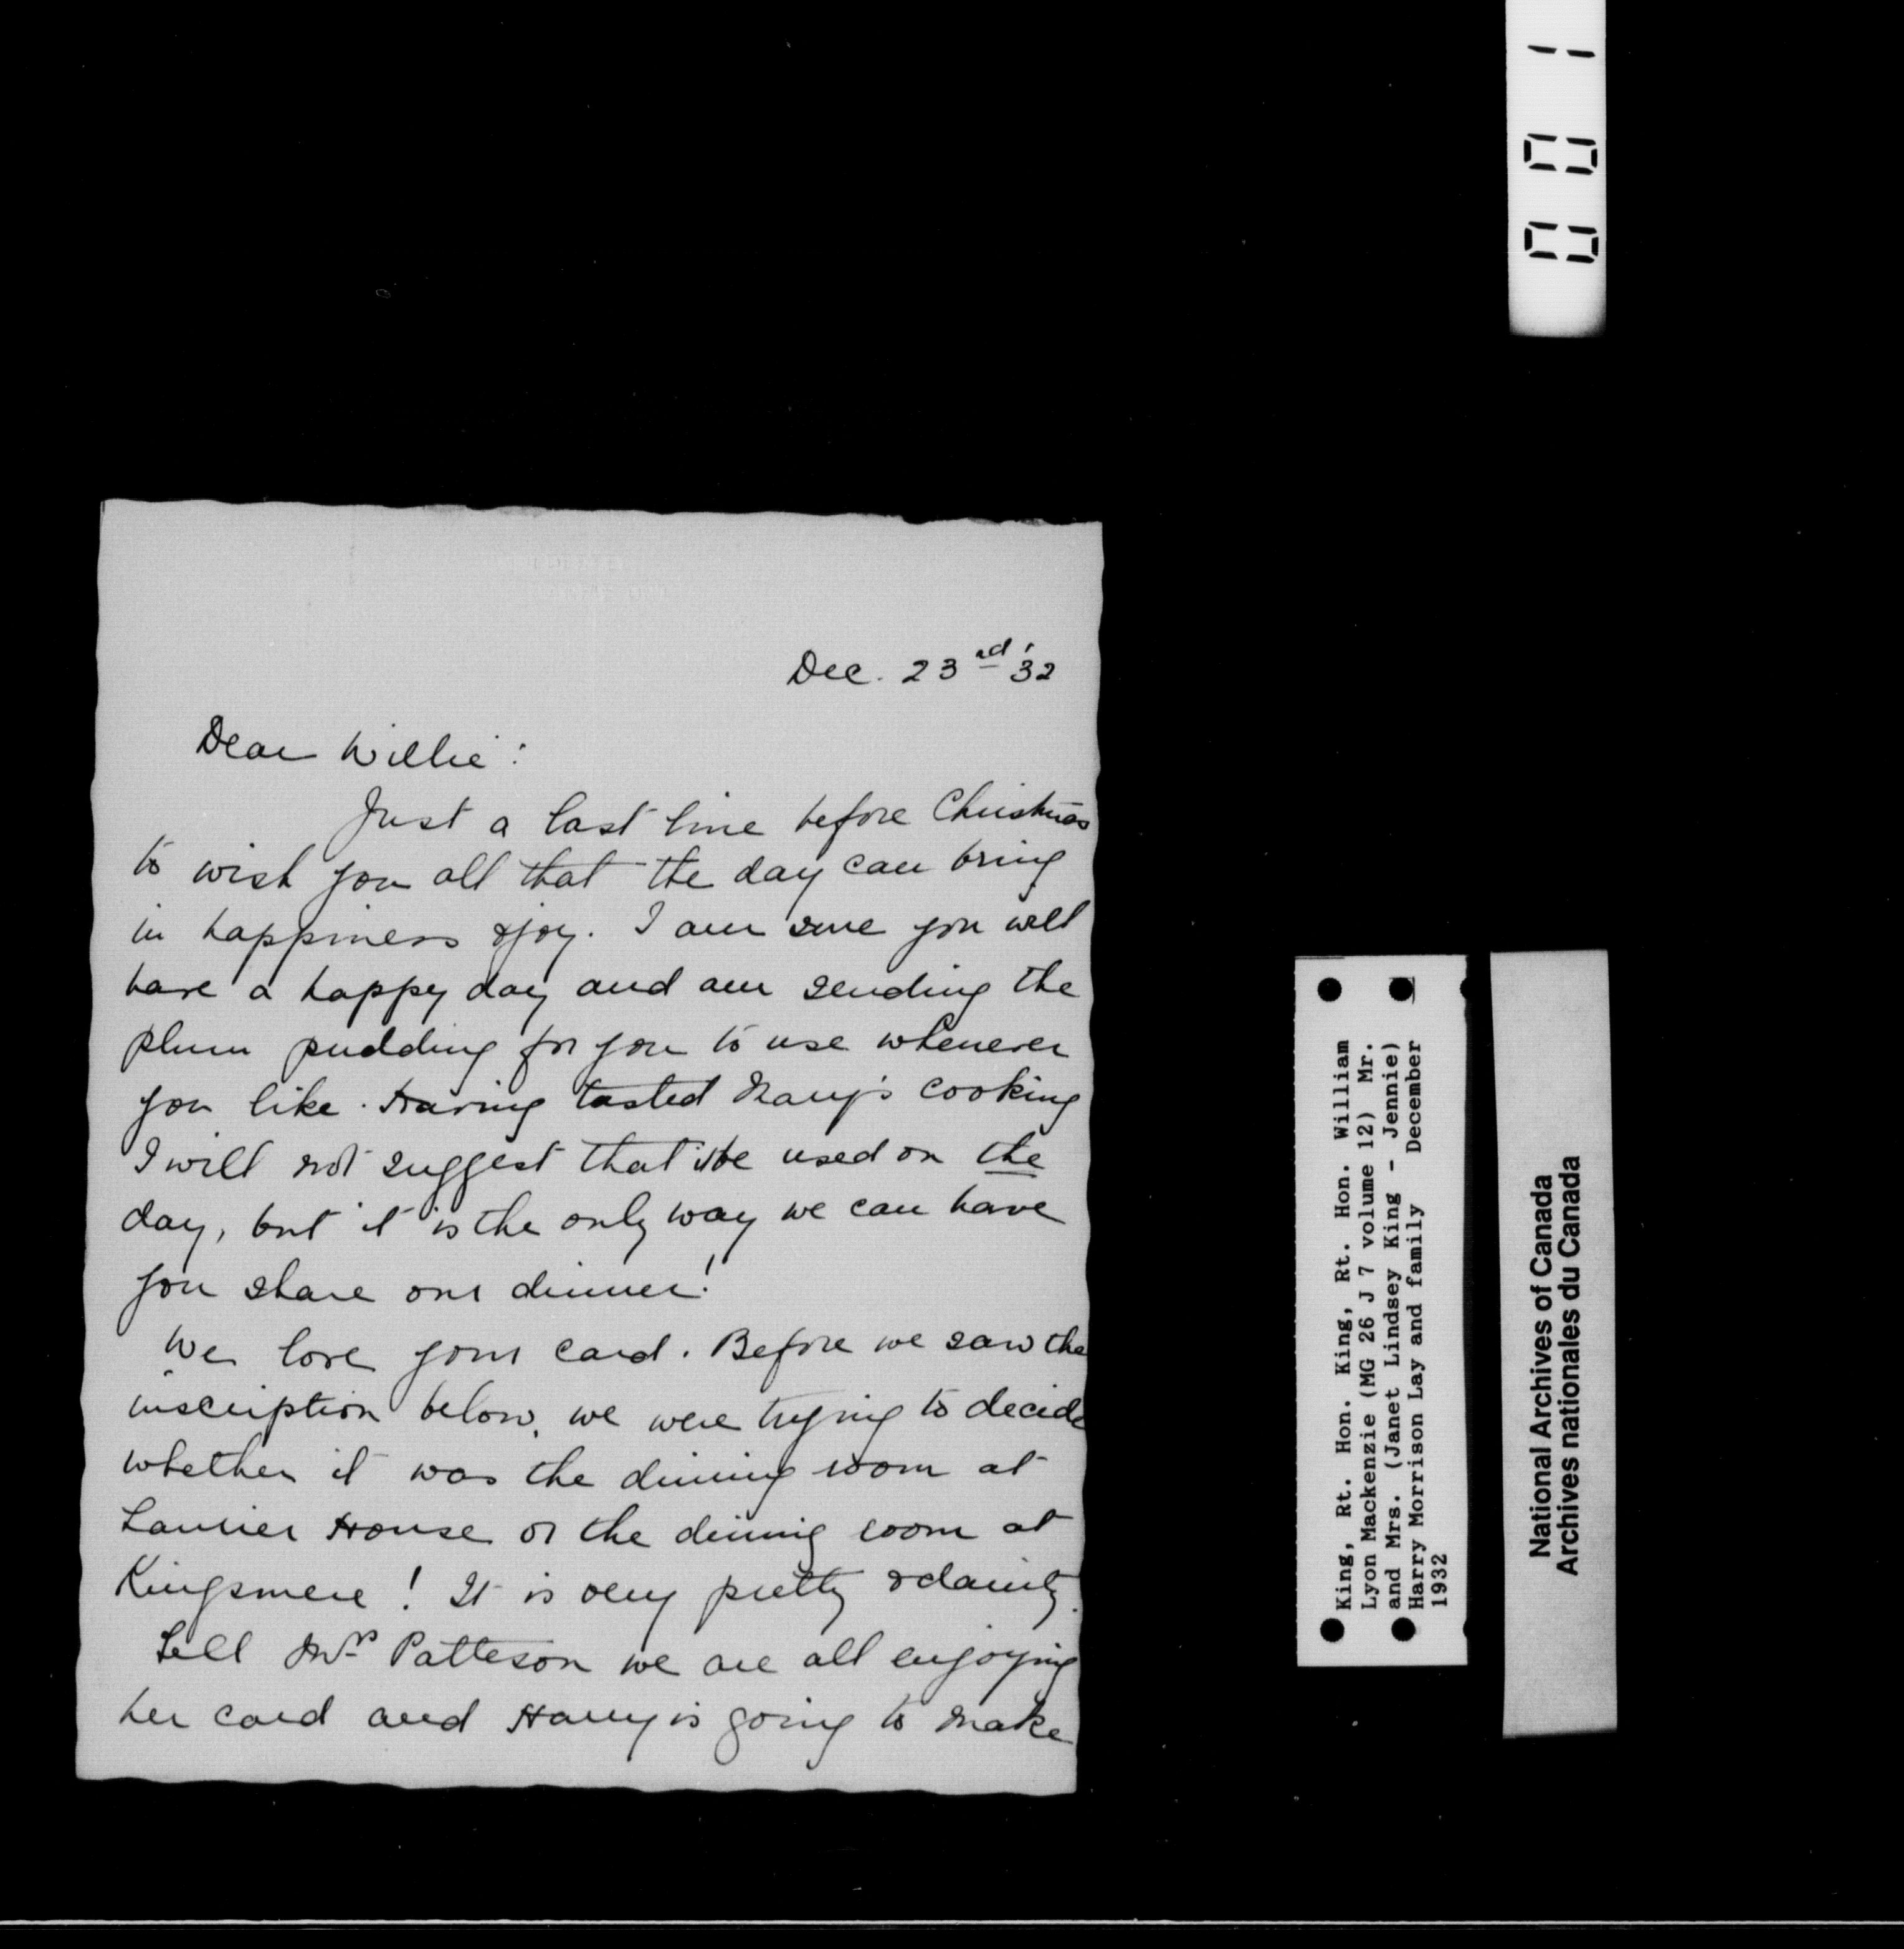 001
Dec. 23rd '32
Dear Willie:
Just a last line before Christmas
to wish you all that the day can bring
in happiness & joy. I am sure you will
have a happy day and am sending the
plum pudding for you to use whenever
you like. Having tasted Mary's cooking
I will not suggest that it be used on the
day, but it is the only way we can have
you share our dinner!
We love your card. Before we saw the
inscription below, we were trying to decide
whether it was the dining room at
Laurier House or the dining room at
Kingsmere! It is very pretty & dainty.
Tell Mrs Patteson we are all enjoying
her card and Harry is going to make
King, Rt. Hon. King, Rt. Hon. William
Lyon Mackenzie (MG 26 J 7 volume 12) Mr.
and Mrs. (Janet Lindsey King - Jennie)
Harry Morrison Lay and family December
1932
National Archives of Canada
Archives nationales du Canada